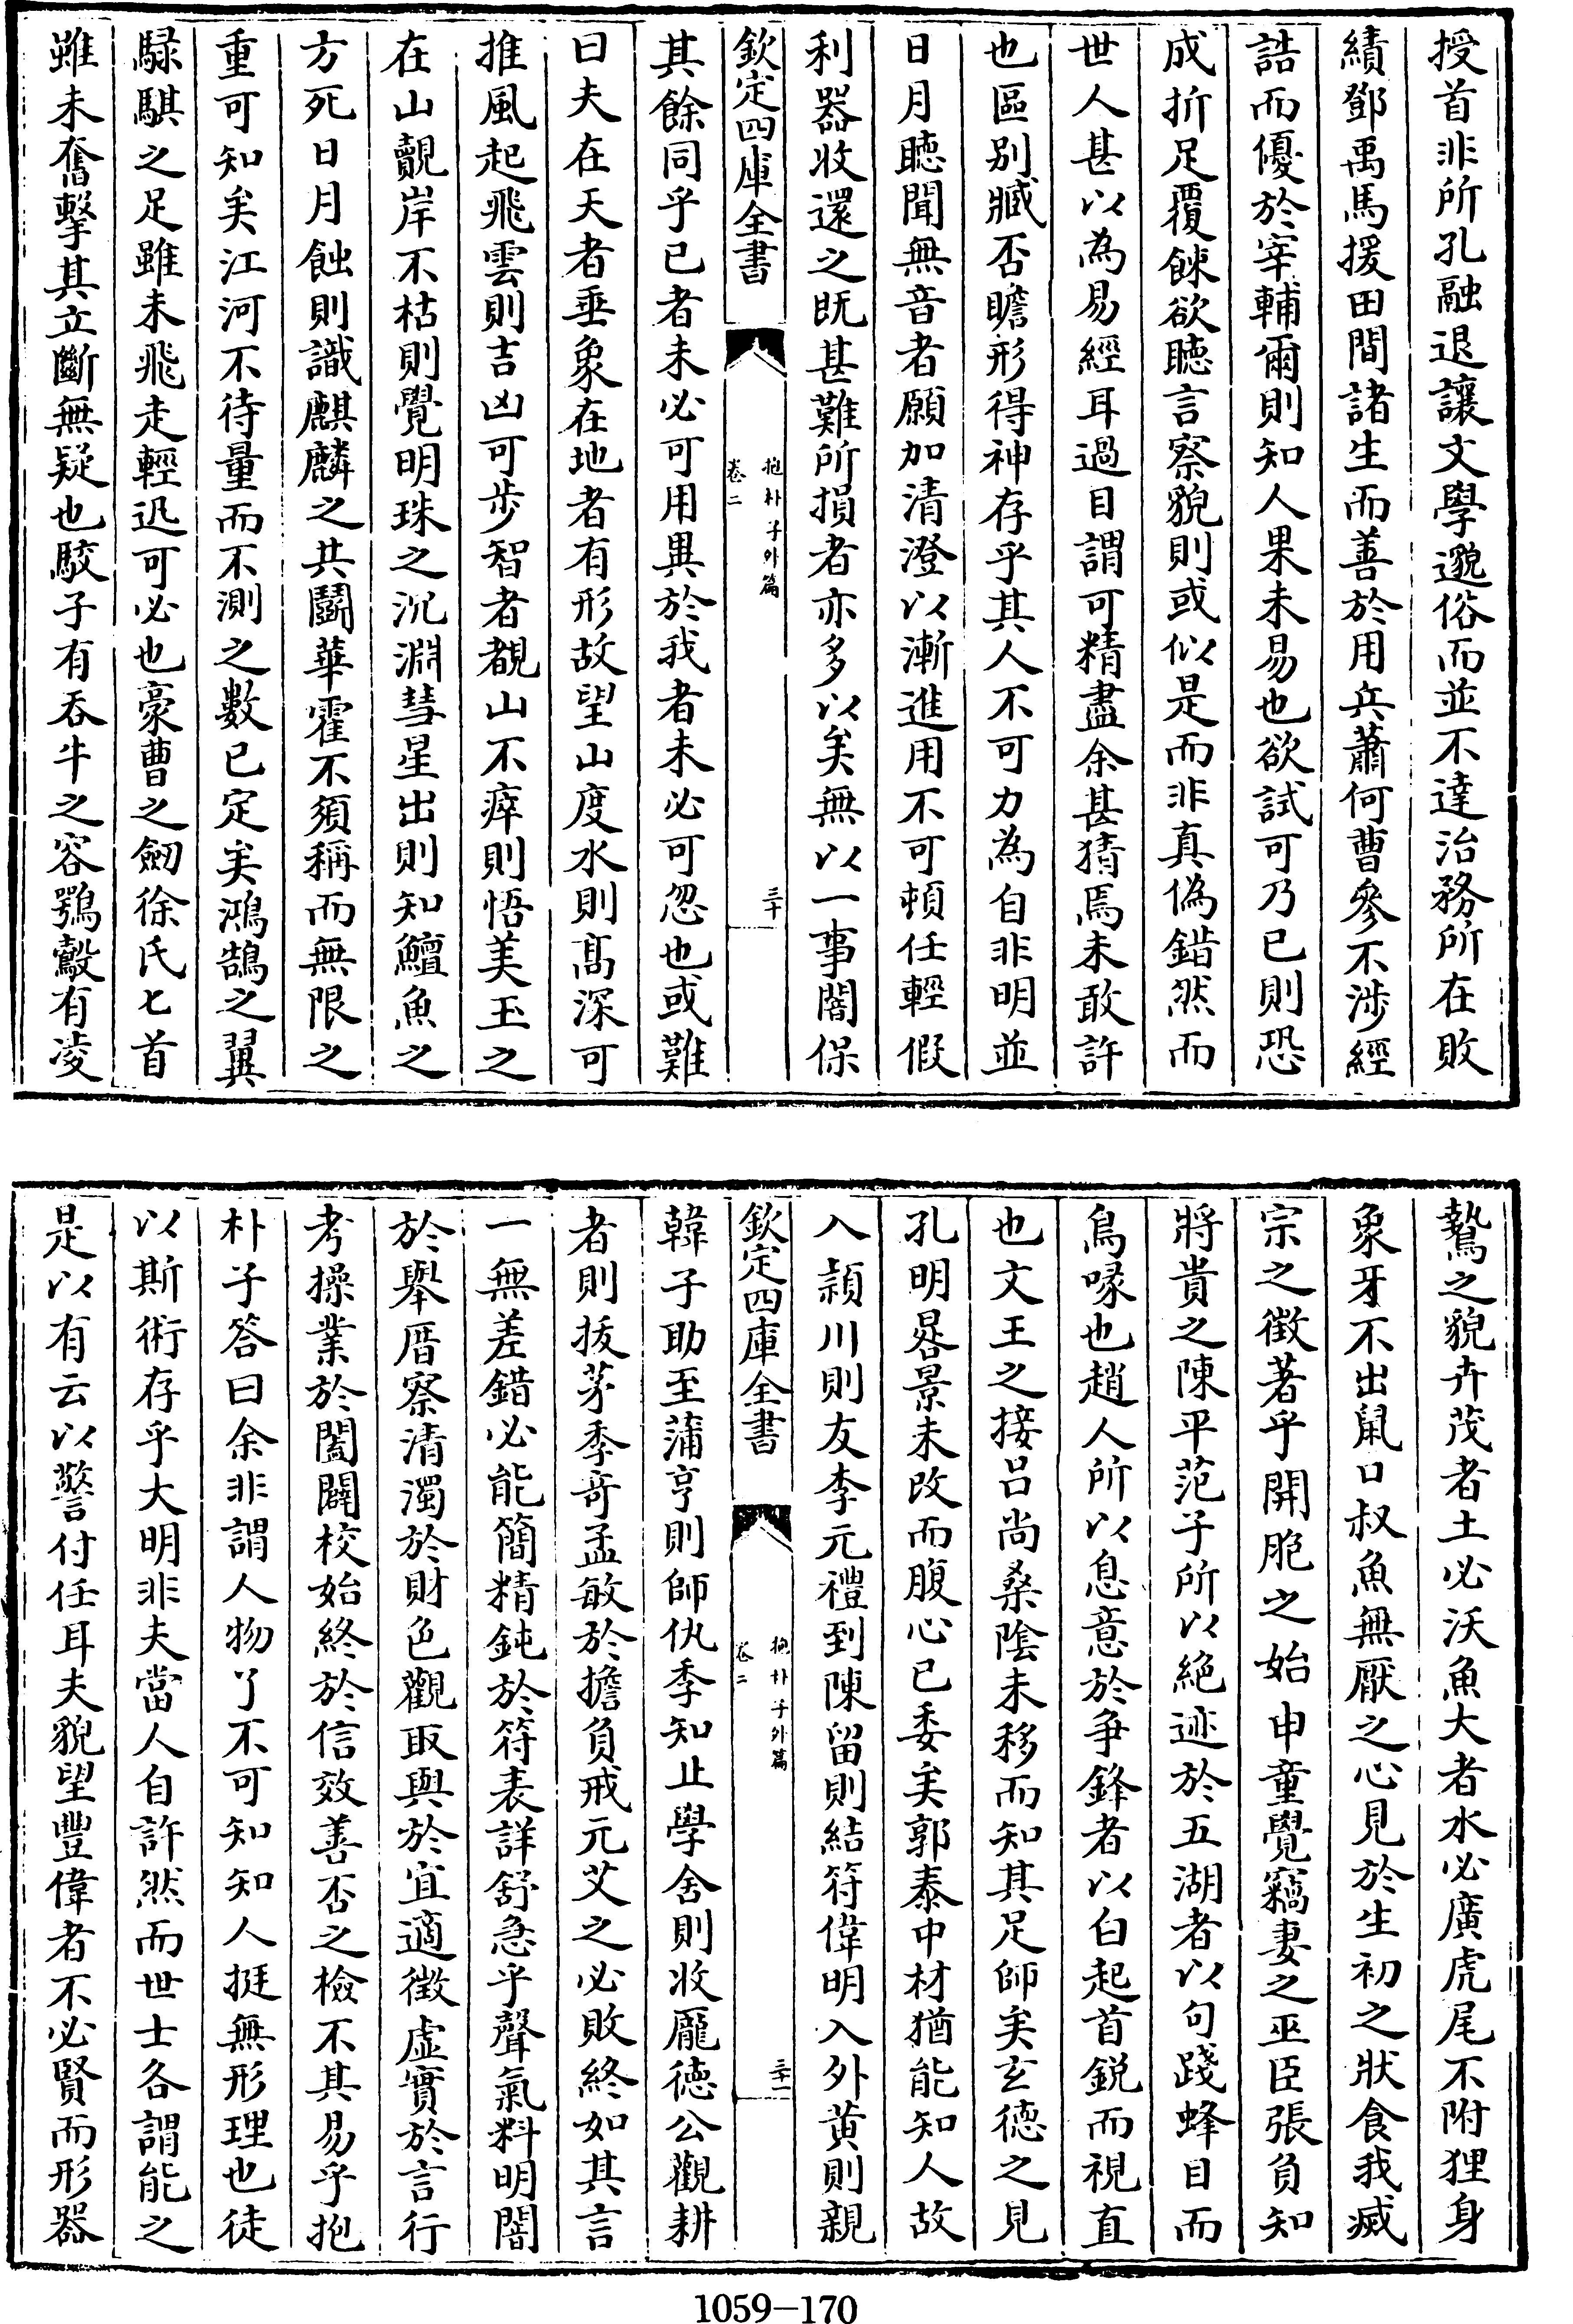 授首非所孔融退讓文學邈俗而並不達治務所在敗
績鄧禹馬援田間諸生而善於用兵蕭何曹參不涉經
誥而優於宰輔爾則知人果未易也欲試可乃已則恐
成折足覆餗欲聽言察貌則或似是而非真偽錯然而
世人甚以為易經耳過目謂可精盡余甚猜焉未敢許
也區別臧否瞻形得神存乎其人不可力為自非明並
日月聽聞無音者願加清澄以漸進用不可頓任輕假
利器收還之既甚難所損者亦多以矣無以一事闇保
欽定四庫全書
抱朴子外篇
卷二
三十
其餘同乎已者未必可用異於我者未必可忽也或難
曰夫在天者垂象在地者有形故望山度水則髙深可
推風起飛雲則吉凶可步智者覩山不瘁則悟美玉之
在山覿岸不枯則覺明珠之沉淵彗星出則知鱣魚之
方死日月蝕則識麒麟之共鬭華霍不須稱而無限之
重可知矣江河不待量而不測之數已定矣鴻鵠之翼
騄騏之足雖未飛走輕迅可必也豪曹之劒徐氏七首
雖未奮擊其立斷無疑也駮子有吞牛之容鶚鷇有凌
鷙之貌卉茂者土必沃魚大者水必廣虎尾不附狸身
象牙不出鼠口叔魚無厭之心見於生初之狀食我滅
宗之徵著乎開胞之始申童覺竊妻之巫臣張負知
將貴之陳平范子所以絶迹於五湖者以句踐蜂目而
鳥喙也趙人所以息意於爭鋒者以白起首鋭而視直
也文王之接呂尚桑陰未移而知其足師矣玄德之見
孔明晷景未改而腹心已委矣郭泰中材猶能知人故
入潁川則友李元禮到陳留則結符偉明入外黄則親
欽定四庫全書
抱朴子外篇
卷二
三十一
韓子助至蒲亨則師仇季知止學舍則收龐徳公觀耕
者則拔茅季竒孟敏於擔負戒元艾之必敗終如其言
一無差錯必能簡精鈍於符表詳舒急乎聲氣料明闇
於舉厝察清濁於財色觀取與於宜適徵虚實於言行
考操業於闔闢校始終於信效善否之檢不其易乎抱
朴子答曰余非謂人物了不可知知人挺無形理也徒
以斯術存乎大明非夫當人自許然而世士各謂能之
是以有云以警付任耳夫貌望豐偉者不必賢而形器
1059-170